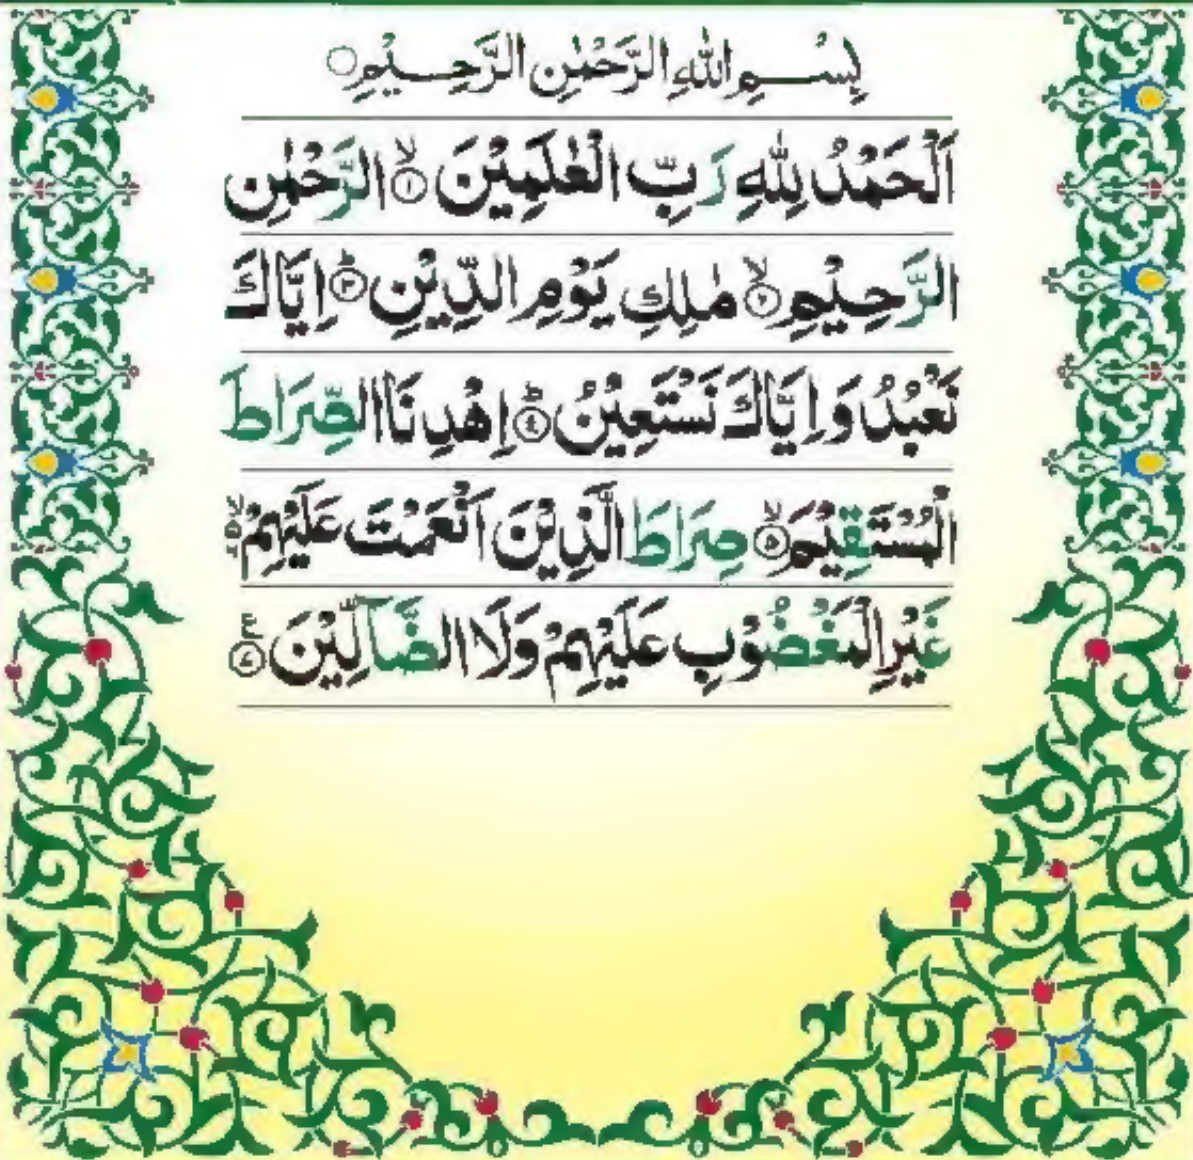 بِسْمِ اللهِ الرَّحْمٰنِ الرَّحِيْمِ ○
اَلْحَمْدُ لِلّٰهِ رَبِّ الْعٰلَمِيْنَ ۙ﴿۱﴾ الرَّحْمٰنِ
الرَّحِيْمِ ۙ﴿۲﴾ مٰلِكِ يَوْمِ الدِّيْنِ ؕ﴿۳﴾ اِيَّاكَ
نَعْبُدُ وَ اِيَّاكَ نَسْتَعِيْنُ ؕ﴿٤﴾ اِهْدِنَا الصِّرَاطَ
الْمُسْتَقِيْمَ ۙ﴿۵﴾ صِرَاطَ الَّذِيْنَ اَنْعَمْتَ عَلَيْهِمْ ۙ
غَيْرِ الْمَغْضُوْبِ عَلَيْهِمْ وَلَا الضَّآلِّيْنَ ﴿۷﴾